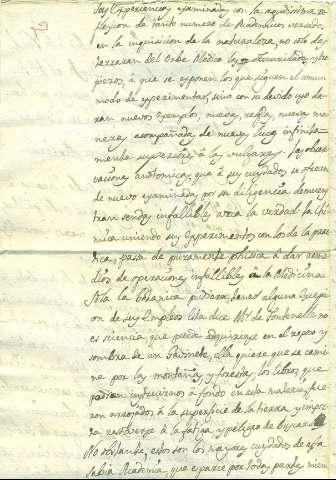 sus Experiencias examinadas con la agudissima re-
flexion de tanto numero de Academicos versados
en la inquisicion de la naturaleza, no solo des-
terraran del Orbe Medico las obscuridades, y tro-
piezos, à que se exponen los que siguen el comun
modo de experimentar, sino con su devido uso da-
ran nuevos exemplos, nueva regla, nueva ma-
nera acompañada de nueva luz infinita-
mente superiores à las vulgares. Las obser-
vaciones anatomicas, que à sus cuydados se ofrecen
de nuevo examinadas por su diligencia demues-
tran sendas infallibles acia la verdad: la Chi-
mica uniendo sus Experimentos con los de la prac-
tica, pasa de puramente phisica à dar reme-
dios de operaciones infallibles en la Medicina
Sola la Botanica pudiera tener alguna excep-
cion de sus Empleos. Esta dice Mr. de Fontenelle no
es sciencia que puede adquirirse en el reposo y
sombra de un Gavinete, ella quiere que se cami-
ne por las montañas y florestas, los libros que
podrian instruirnos à fondo en esta materia, fue-
ron arrojados à la superficie de la tierra, y es impre-
resolverse à la fatiga y peligro de buscarlos
No obstante, estos son los mayores cuydados de esta
sabia Academia, que esparce por todas partes miem